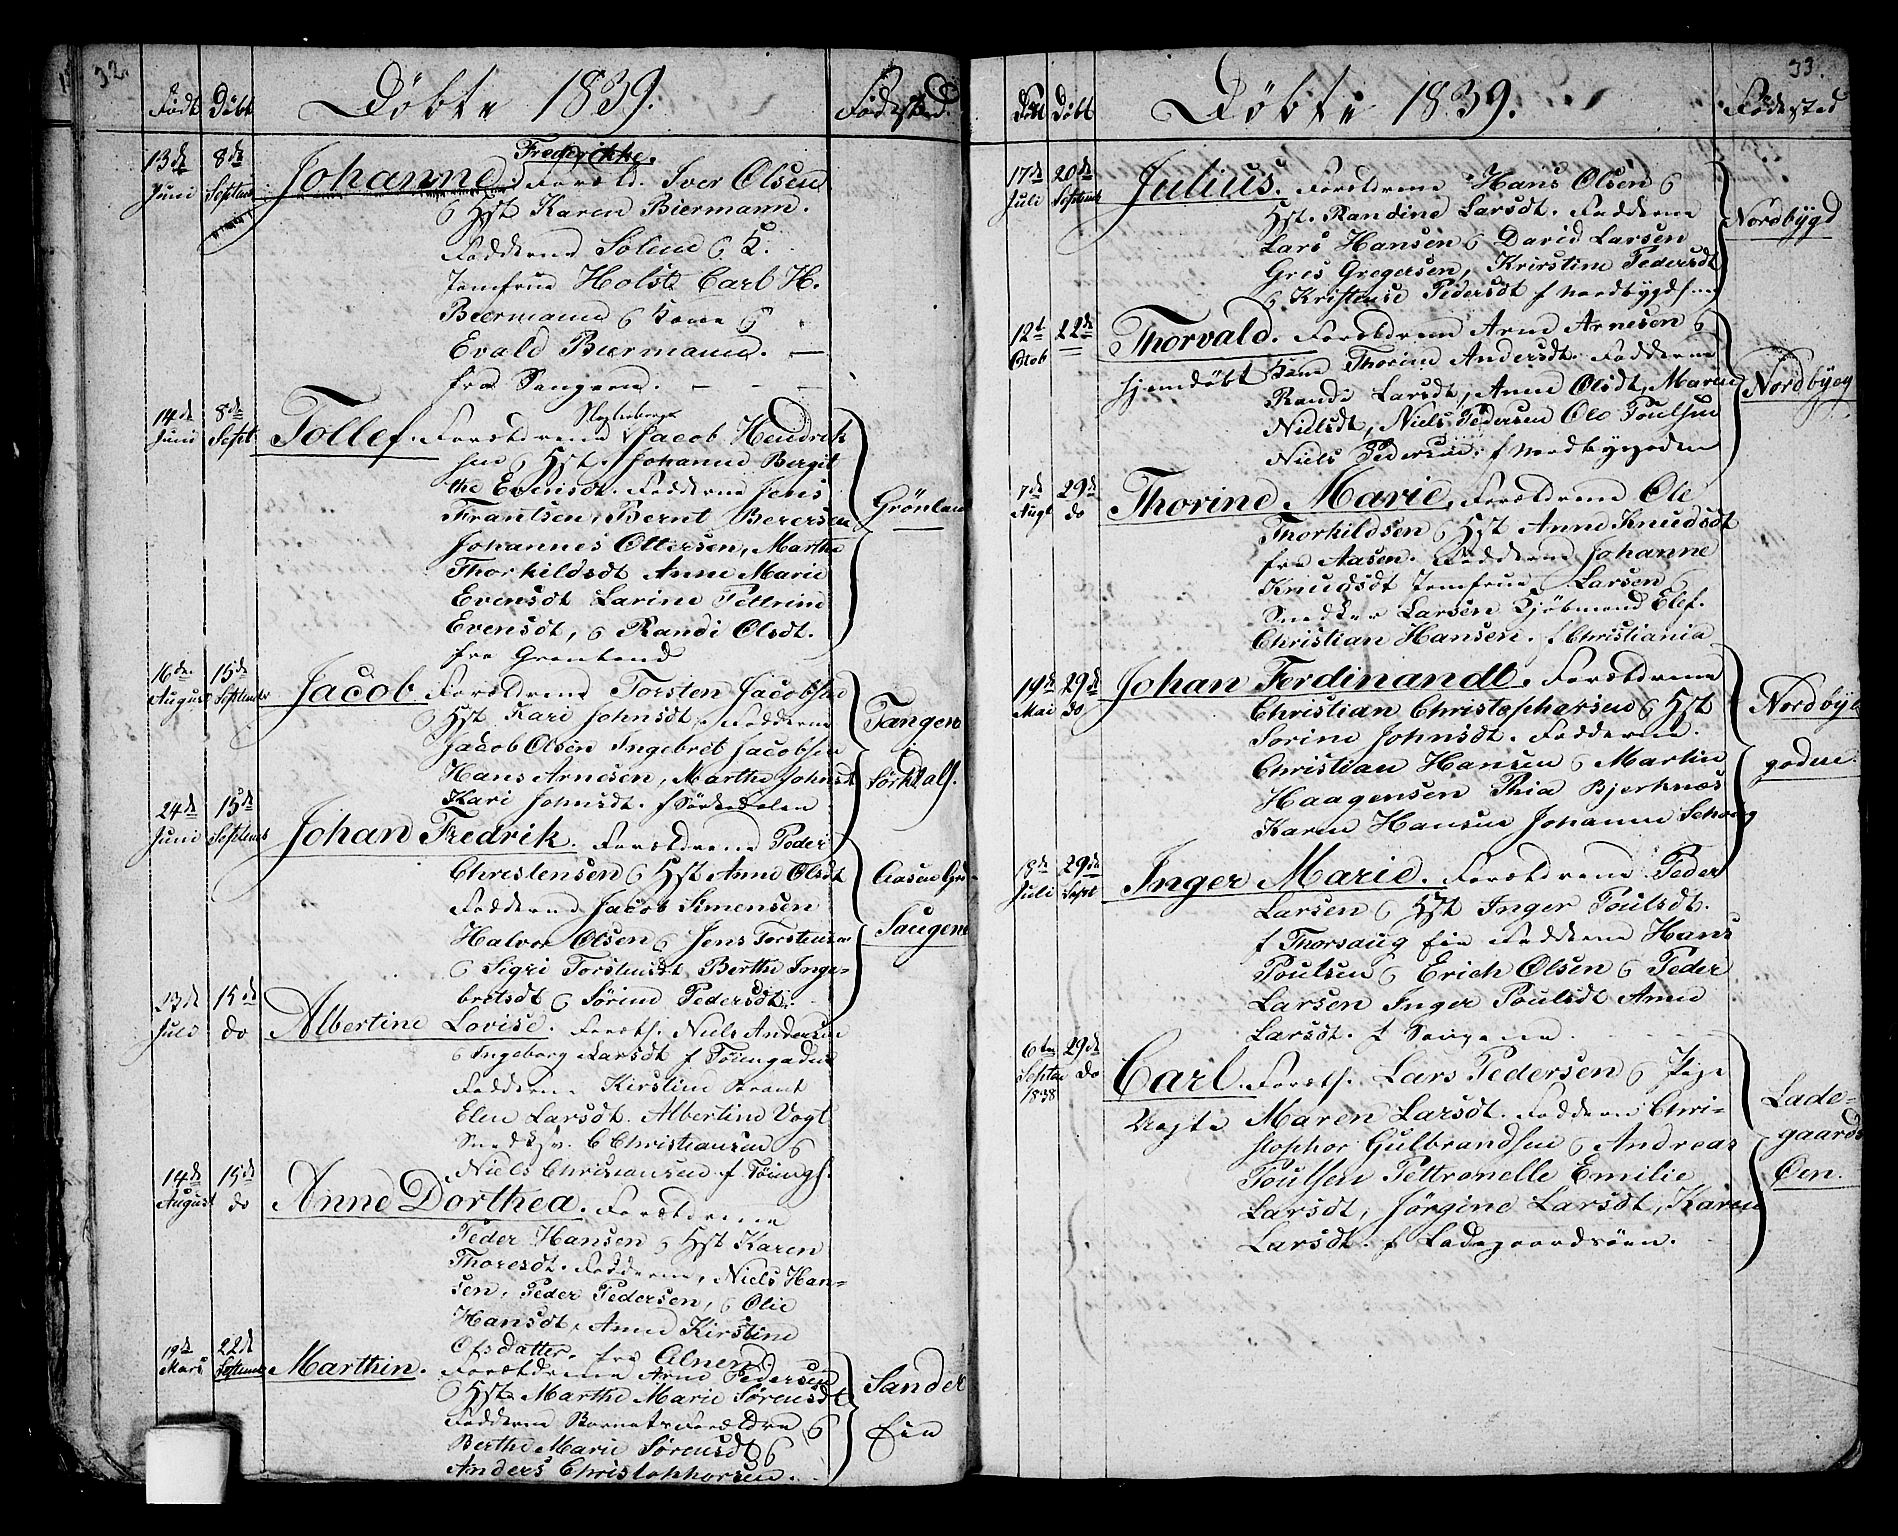 32.
Født Døbt Døbte 1839. Fødested.
13de Juni 8de Septems Johanne Frederikke. Foræld. Iver Olsen
6 Hst Karen Biermann.
Fadderne Solem 6 K.
Jomfrue Holst Carl H.
Biermann 6 Kone 6
Evald Biermann. —
fra Saugene. — — —
14de Juni 8de Sept Tollef. Forældrene Jacob Hendrik
sen 6 Hst. Johanne Bergit
the Evensdt. Fadderne Jens
Frantsen, Bernt Berersen
Johannes Ottersen, Marthe
Thorkildsdt Anne Marie
Evensdt Larine Pettrine
Evensdt, 6 Randi Olsdt.
fra Grønland
Grönland
16de August 15de Septembr Jacob Forældrene Torsten Jacobsen
6 Hst Kari Johnsdt. Fadderne
Jacob Olsen Ingebret Jacobsen
Hans Arnesen, Marthe Johnsdt
Kari Johnsdt. f Sörkedalen
Tangen
Sörkdalf.
24de Juni 15de Septems Johan Fredrik. Forældrene Peder
Christensen 6 Hst Anne Olsdt
Fadderne Jacob Simensen
Halvor Olsen 6 Jens Torstensen
6 Sigri Torstensdt, Berthe Inge-
bretsdt 6 Sørine Pedersdt.
Aasen Gr-
Saugene
15de do Albertine Lovise. Foræls. Niels Andersen
6 Ingeborg Larsdt f Töiengaden
Fadderne Kirstine
Elen Larsdt. Albertine Vogt
C Christiansen 6
Niels Christiansen f Töiengf.
14de August 15de do Anne Dorthea. Forældrene
Peder Hansen 6 Hst Karen
Thoresdt. Fadderne, Niels Han-
sen, Peder Pedersen, 6 Olie
Hansdt, Anne Kirstine
Olsdatter. fra Alnen
19de Mars 22de Septems Marthin. Forældrene Arne Pedersen
6 Hst Marthe Marie Sørensdt
Fadderne Barnets Forældre 6
Berthe Marie Sørensdt 6
Anders Christophersen.
Sander
Eie
33.
Født Døbt Døbte 1839. Fødested
17de Juli 20de Septems Julius. Forældrene Hans Olsen 6
Hst. Randine Larsdt. Fadderne
Lars Hansen 6 David Larsen
Gres Gregersen, Kristine Pedersdt
6 Kristense Pedersdt f Nordbygdsen
Nordbÿgd
12t Octob 22de Thorvald. Forældrene Arne Arnesen 6
hjemdøbt Kone Thorine Andersdt. Fadderne
Rande Larsdt, Anne Olsdt, Maren
Nielsdt, Niels Pedersen Ole Poulsen
Niels Pedersen f Nordbygaden
Nordbÿg
7de Augt 29de do Thorine Marie, Forældrene Ole
Thorkildsen 6 Hst Anne Knudsdt
fra Aasen. Fadderne Johanne
Knudsdt Jomfrue Larsen 6
Snedker Larsen Kjöbmand Elef.
Christian Hansen. f Christiania
19de Mai 29de do Johan Ferdinandt. Forældrene
Christian Christophersen 6 Hst
Sorine Johnsdt. Fadderne.
Christian Hansen 6 Martin
Haagensen Thia Bjerknæs
Karen Hansen Johanne Schoug
Nordbÿ
gaden.
18de Juli 29de Sept Inger Marie. Forældrene Peder
Larsen 6 Hst Inger Poulsdt.
f Thorsaug Eie Fadderne Hans
Poulsen 6 Erich Olsen 6 Peder
Larsen Inger Poulsdt Anne
Larsdt. f Saugene
6te Septem 1838 29de do Carl. Foræls. Lars Pedersen 6 Pige
Uegte Maren Larsdt. Fadderne Chri-
stopher Gulbrandsen 6 Andreas
Poulsen Pettronelle Emilie
Larsdt, Jørgine Larsdt, Karen
Larsdt. f Ladegaardsöen.
Lade-
gaards
Øen.